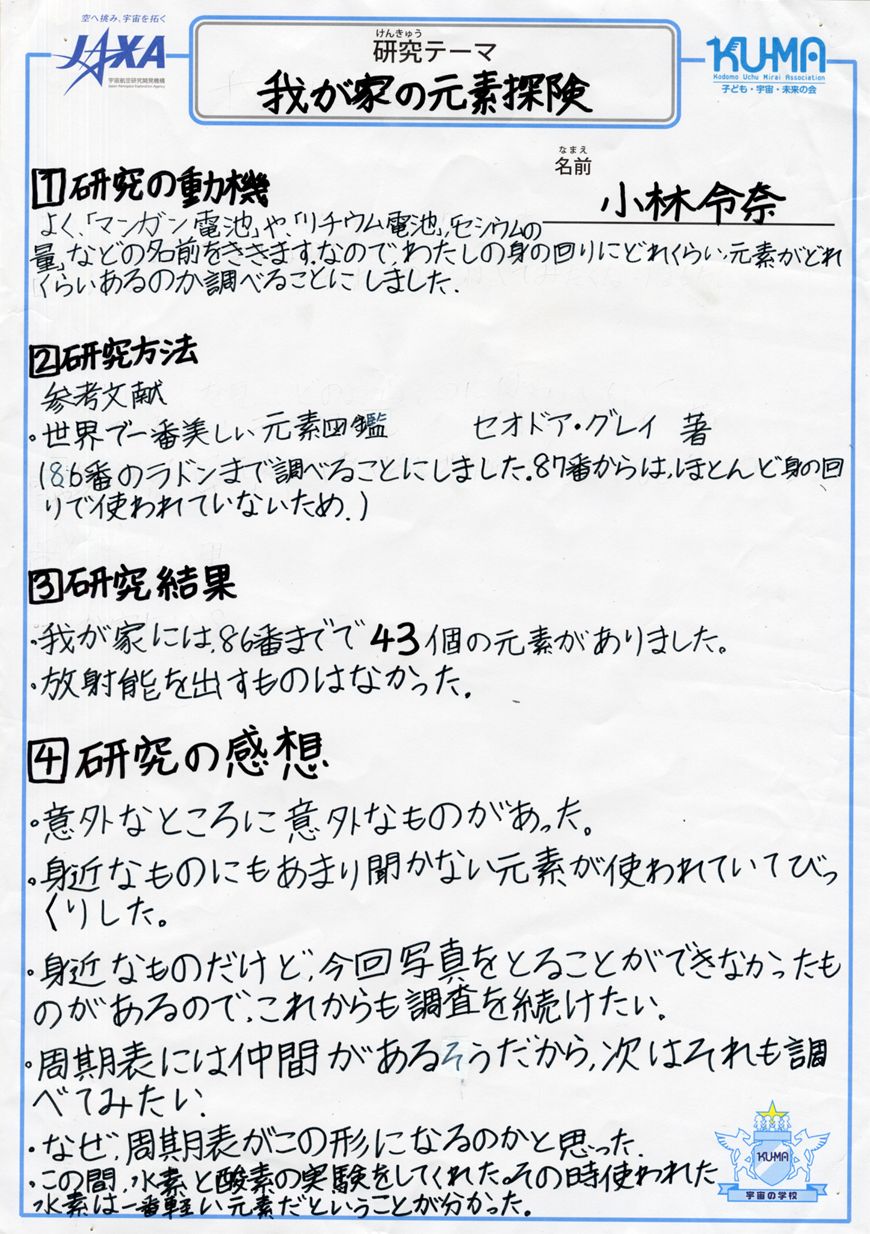 空へ挑み、宇宙を拓く
JAXA
宇宙航空研究開発機構
Japan Aerospace Exploration Agency
けんきゅう
研究テーマ
我が家の元素探険
KU-MA
Kodomo Uchu Mirai Association
子ども・宇宙・未来の会
なまえ
名前
小林令奈
1 研究の動機
よく、「マンガン電池」や、「リチウム電池」、「セシウムの
量」などの名前をききます。なので、わたしの身の回りにどれくらい元素がどれ
くらいあるのか調べることにしました.
2 研究方法
参考文献
・世界で一番美しい元素図鑑 セオドア・グレイ 著
(86番のラドンまで調べることにしました。87番からは、ほとんど身の回
りで使われていないため.)
3 研究結果
・我が家には、86番までで43個の元素がありました。
・放射能を出すものはなかった.
4 研究の感想
・意外なところに意外なものがあった。
・身近なものにもあまり聞かない元素が使われていてびっ
くりした。
・身近なものだけど、今回写真をとることができなかったも
のがあるので、これからも調査を続けたい。
・周期表には仲間があるそうだから、次はそれも調
べてみたい.
・なぜ、周期表がこの形になるのかと思った.
・この間、水素と酸素の実験をしてくれた。その時使われた
水素は一番軽い元素だということが分かった。
KU-MA
宇宙の学校